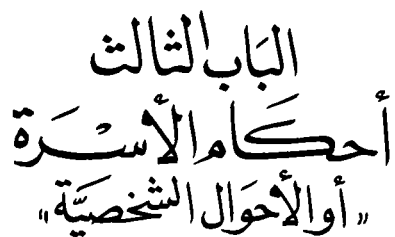 البَاب الثالث
أحكَام الأسْرَة
«أو الأحوَال الشخصيَّة»